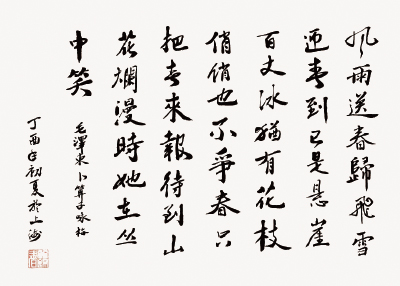 風雨送春歸飛雪
迎春到已是悬崖
百丈冰猶有花枝
俏俏也不爭春只
把春來報待到山
花爛漫時她在丛
中笑
毛澤東卜算子咏梅
丁酉年初夏於上海